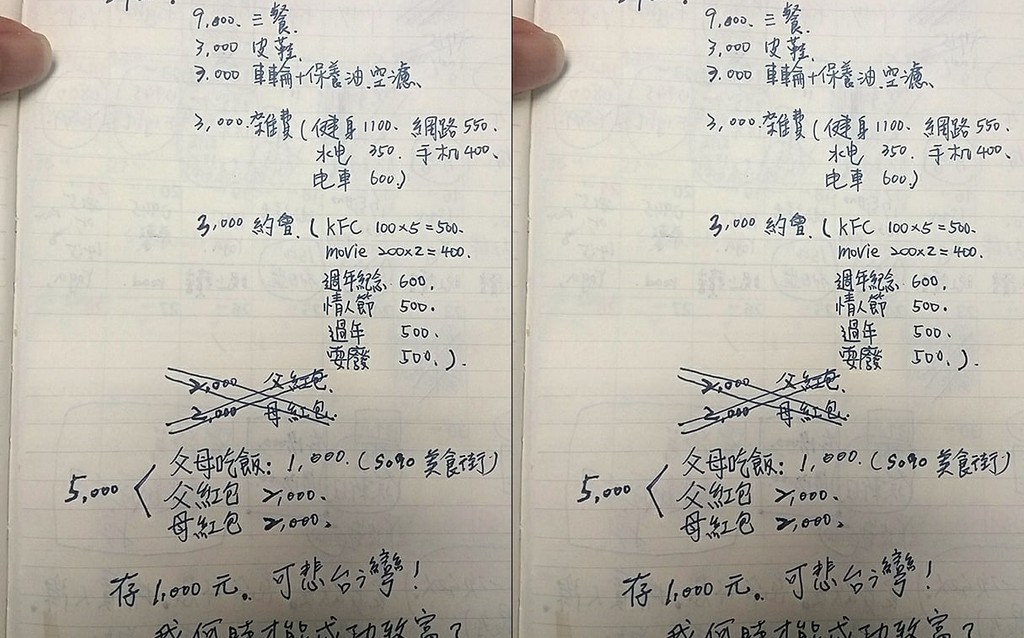 9,000. 三餐.
3,000 皮鞋.
3,000 車輪+保養油.空濾、
3,000.雜費(健身1100. 網路550.
水电 350. 手机400、
电車 600.)
3,000 約會.(KFC 100×5=500.
movie 200×2=400.
週年紀念 600.
情人節 500.
過年 500.
耍廢 500.).
2,000 父紅包.
2,000 母紅包.
5,000 < 父母吃飯:1,000.(sogo 美食街)
父紅包 2,000.
母紅包 2,000、
存1,000元。可悲台灣!
我何時才能成功致富?
9,000. 三餐.
3,000 皮鞋.
3,000 車輪+保養油.空濾、
3,000.雜費(健身1100. 網路550.
水电 350. 手机400、
电車 600.)
3,000 約會.(KFC 100×5=500.
movie 200×2=400.
週年紀念 600.
情人節 500.
過年 500.
耍廢 500.).
2,000 父紅包.
2,000 母紅包.
5,000 < 父母吃飯:1,000.(sogo 美食街)
父紅包 2,000.
母紅包 2,000、
存1,000元。可悲台灣!
我何時才能成功致富?